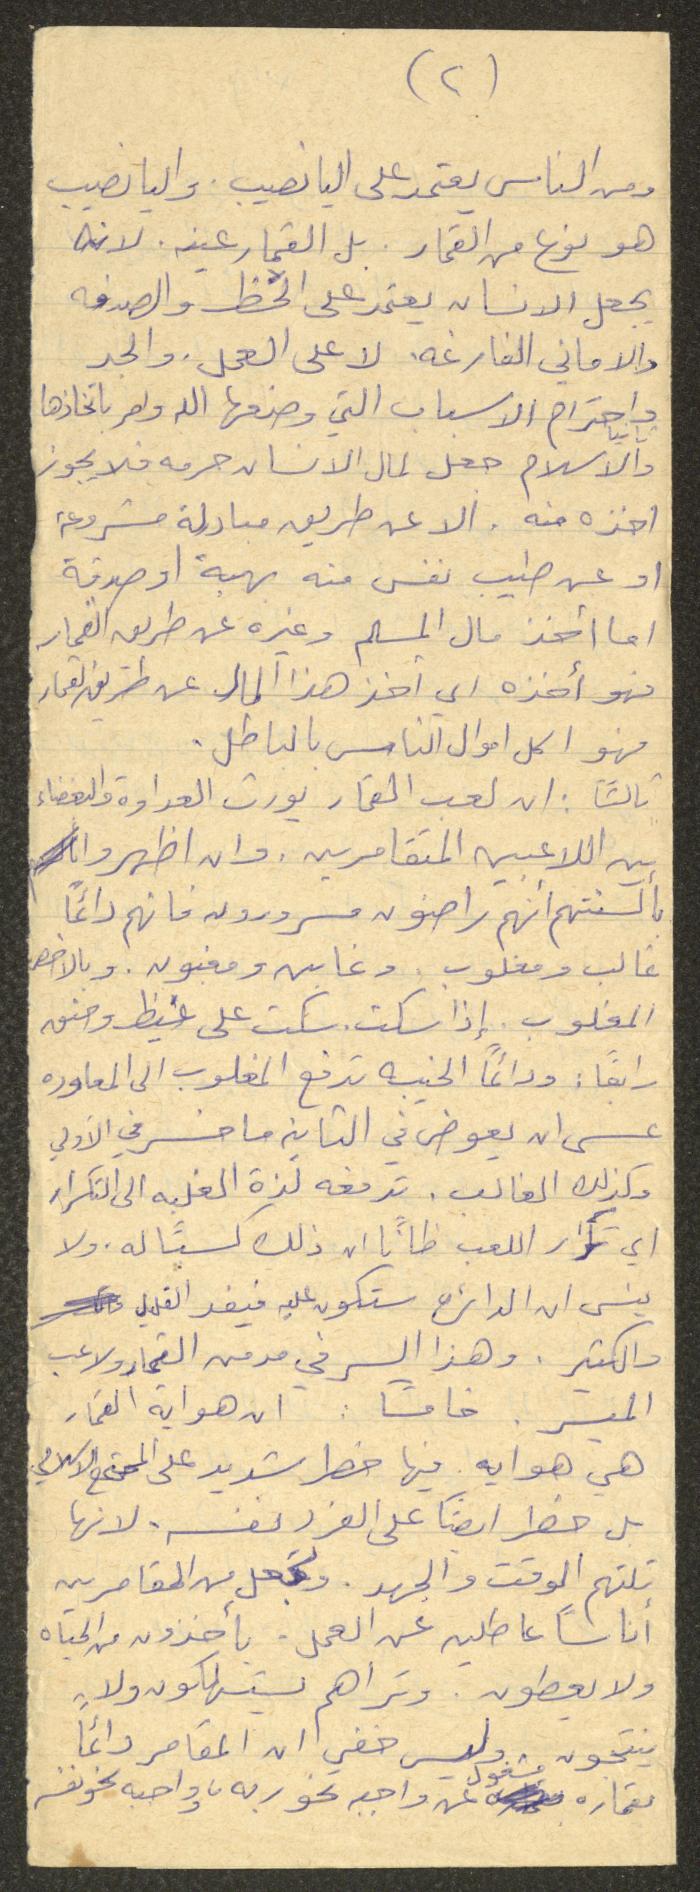 (٢)
ومن الناس يعتمد على اليانصيب. واليانصيب
هو نوع من القمار. بل القمار عينه. لانه
يجعل الانسان يعتمد على الحظ والصدفه
والاماني الفارغه. لا على العمل. والجد
واحترام الاسباب التي وضعها الله وامر باتخاذها
ثانيا
والاسلام جعل لمال الانسان حرمه فلا يجوز
اخذه منه. الا عن طريق مبادلة مشروعة
او عن طيب نفس منه بهبة او صدقة
اما أخذ مال المسلم وغيره عن طريق القمار
فهو أخذه اي أخذ هذا المال عن طريق القمار
فهو اكل اموال الناس بالباطل.
ثالثًا: ان لعب القمار يورث العداوة والبغضاء
بين اللاعبين المتقامرين. وان اظهروا
بألسنتهم أنهم راضون مسرورون فانهم دائمًا
غالب ومغلوب. وغابن ومغبون. وبالاخص
المغلوب. إذا سكت. سكت على غيظ وحنق
رابعًا: ودائمًا الخيبه تدفع المغلوب الى المعاوده
عسى ان يعوض في الثانية ما خسر في الأولى
وكذلك الغالب. تدفعه لذة الغلبه الى التكرار
اي تكرار اللعب ظانًا ان ذلك كسبًا له. ولا
ينسى ان الدائرة ستكون عليه فيفقد القليل
والكثير. وهذا السر في مدمن القمار ولاعب
الميسر. خامسًا: ان هواية القمار
هي هوايه. فيها خطر شديد على المجتمع الاسلامي.
بل خطر ايضًا على الفرد نفسه. لانها
تلتهم الوقت والجهد. وتجعل من المقامرين
أناسًا عاطلين عن العمل. يأخذون من الحياه
ولا يعطون. وتراهم يستهلكون ولا
ينتجون وليس خفي ان المقامر دائمًا
مشغول
بقماره عن واجبه نحو ربه وواجبه نحو نفسه